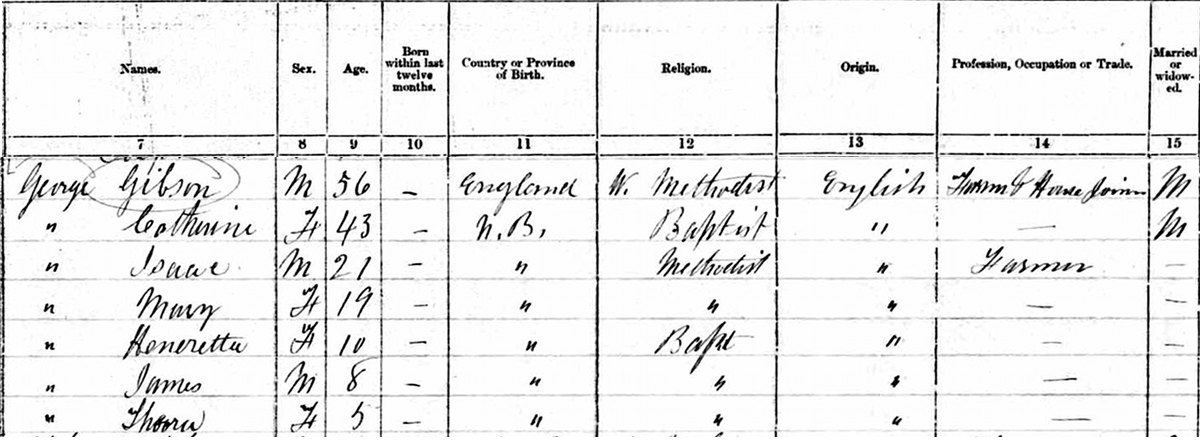 Names. Sex. Age. Born within last twelve months. Country or Province of Birth. Religion. Origin. Profession, Occupation or Trade. Married or widow-ed.
7 8 9 10 11 12 13 14 15
George Gibson M 56 – England W. Methodist English Farmer & House Joiner M
" Catherine F 43 – N.B. Baptist " — M
" Isaac M 21 – " Methodist " Farmer —
" Mary F 19 – " " " — —
" Heneretta F 10 – " Bapt " — —
" James M 8 – " " " — —
" F 5 – " " " — —